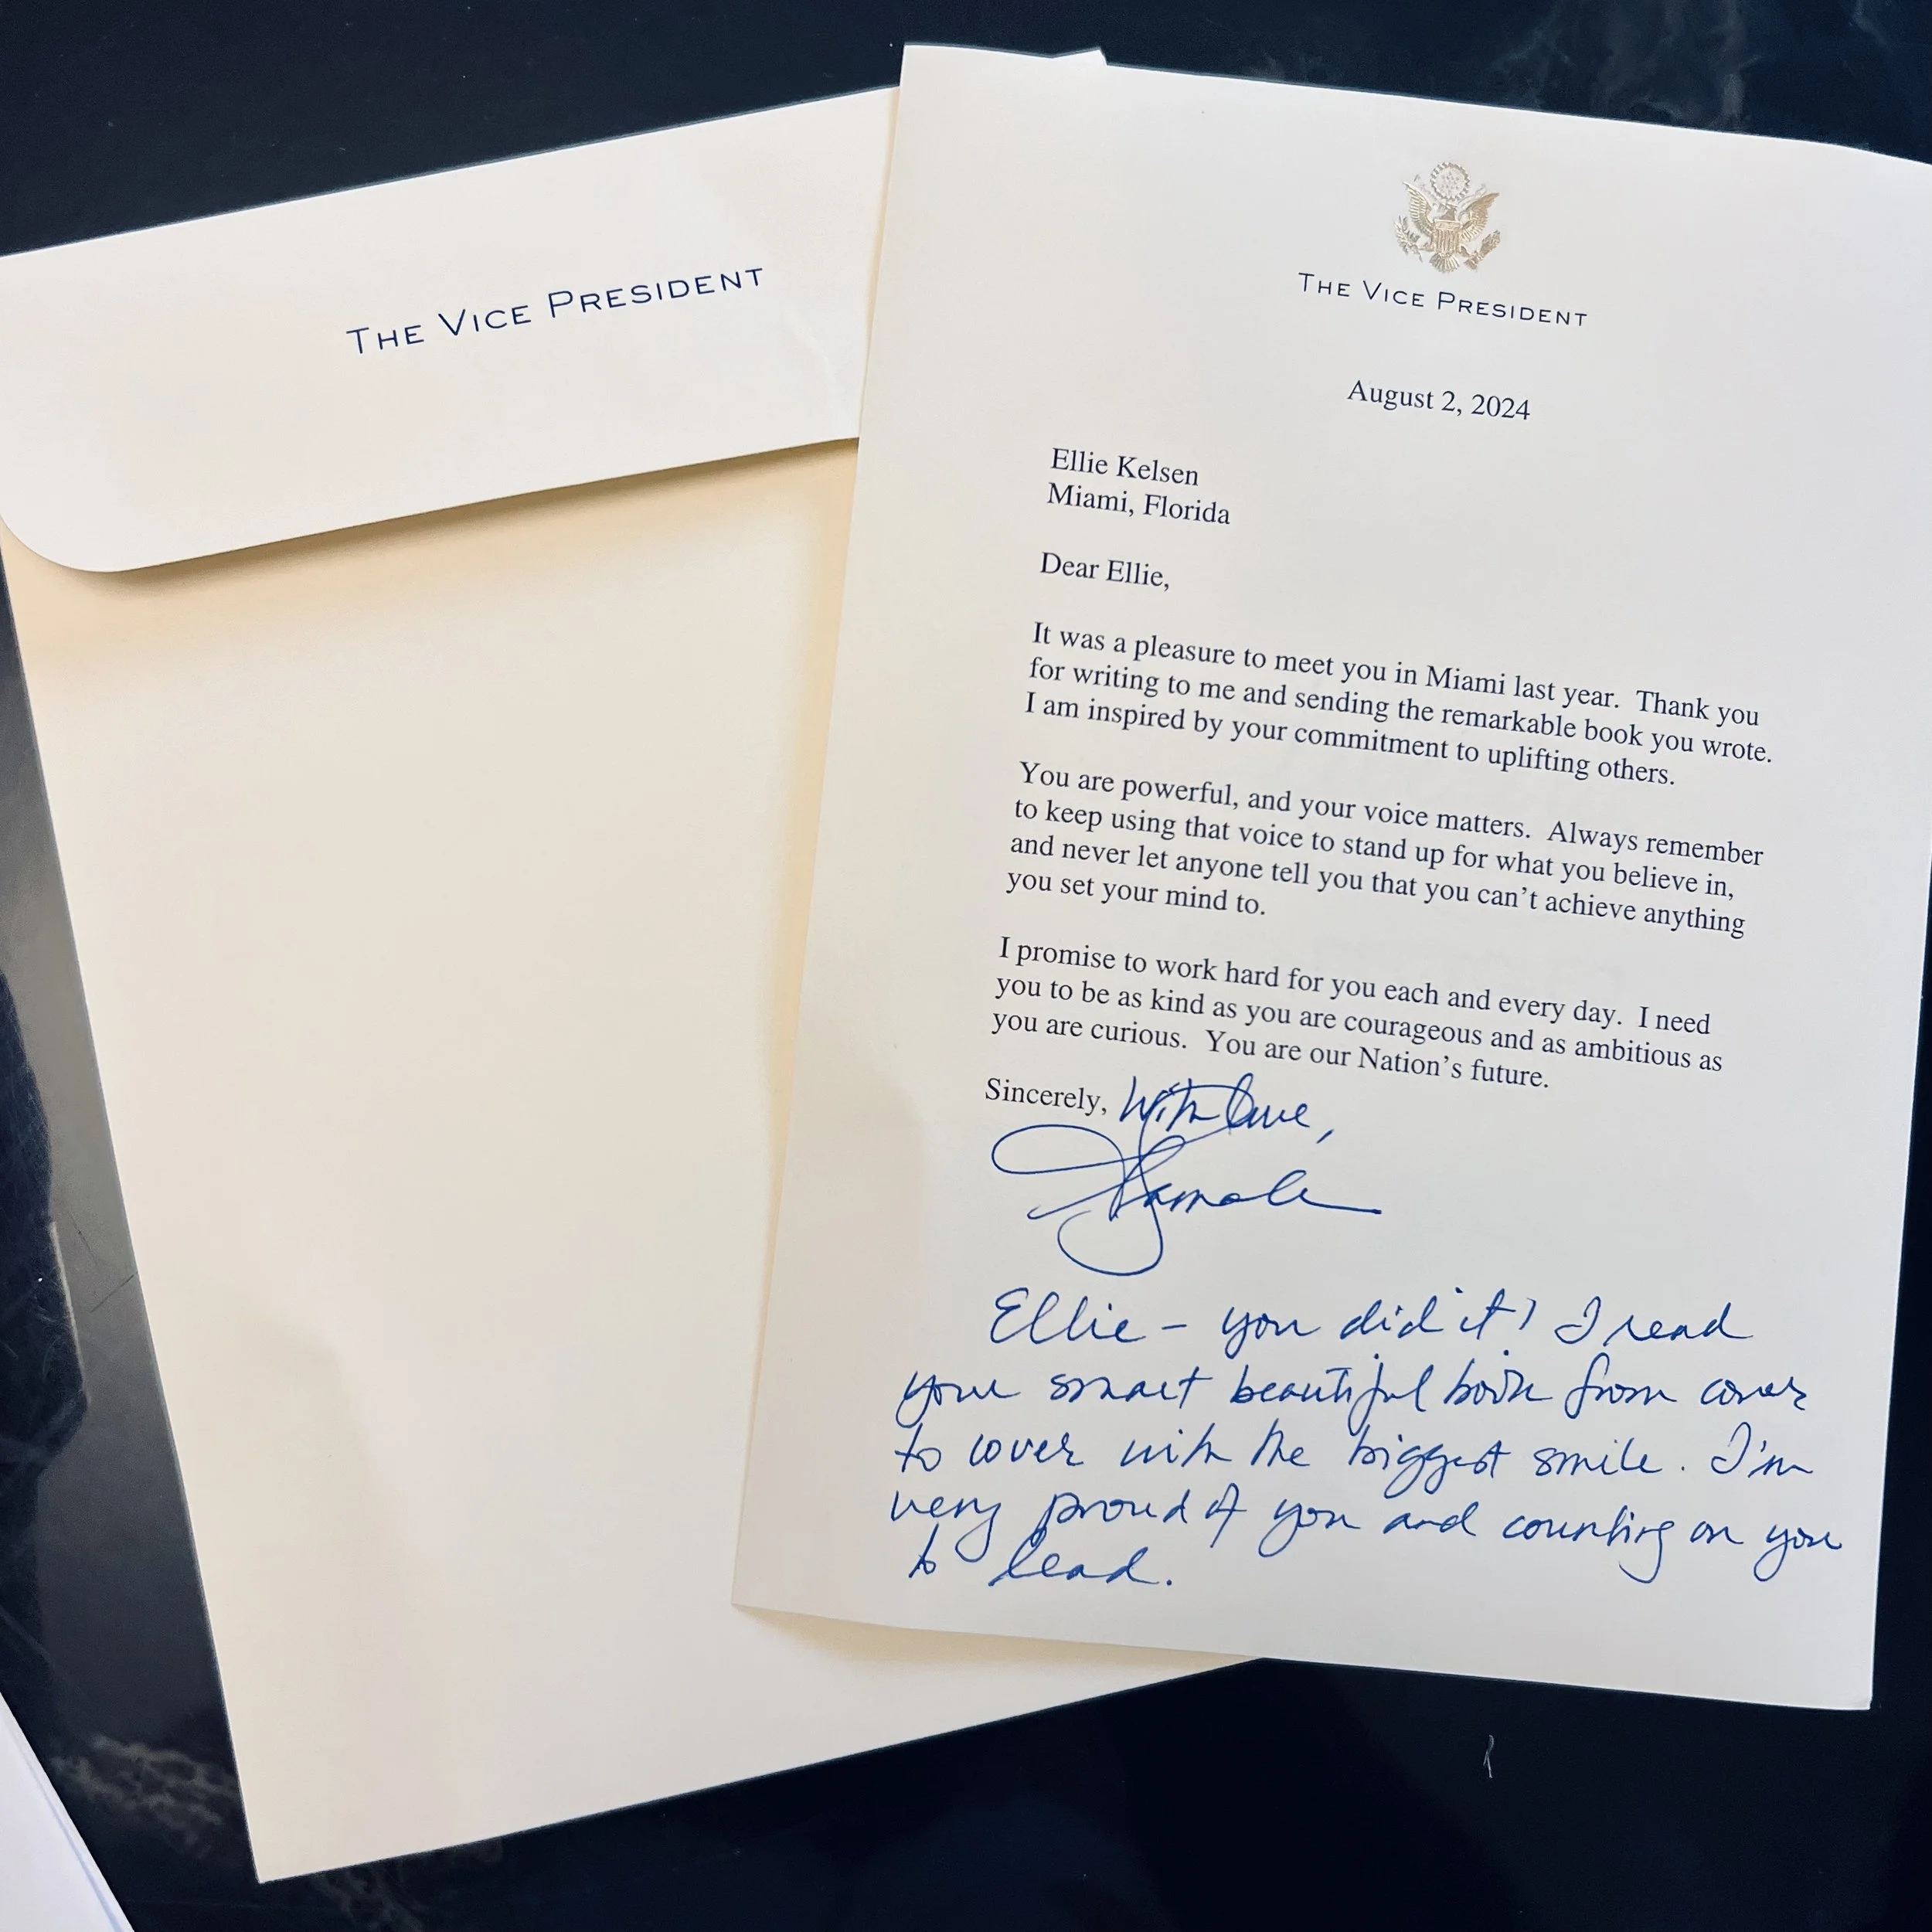 The Vice President
The Vice President
August 2, 2024
Ellie Kelsen
Miami, Florida
Dear Ellie,
It was a pleasure to meet you in Miami last year.  Thank you
for writing to me and sending the remarkable book you wrote.
I am inspired by your commitment to uplifting others.
You are powerful, and your voice matters.  Always remember
to keep using that voice to stand up for what you believe in,
and never let anyone tell you that you can’t achieve anything
you set your mind to.
I promise to work hard for you each and every day.  I need
you to be as kind as you are courageous and as ambitious as
you are curious.  You are our Nation’s future.
Sincerely, With love,
Kamala
Ellie – you did it! I read
your smart beautiful book from cover
to cover with the biggest smile. I'm
very proud of you and counting on you
to lead.